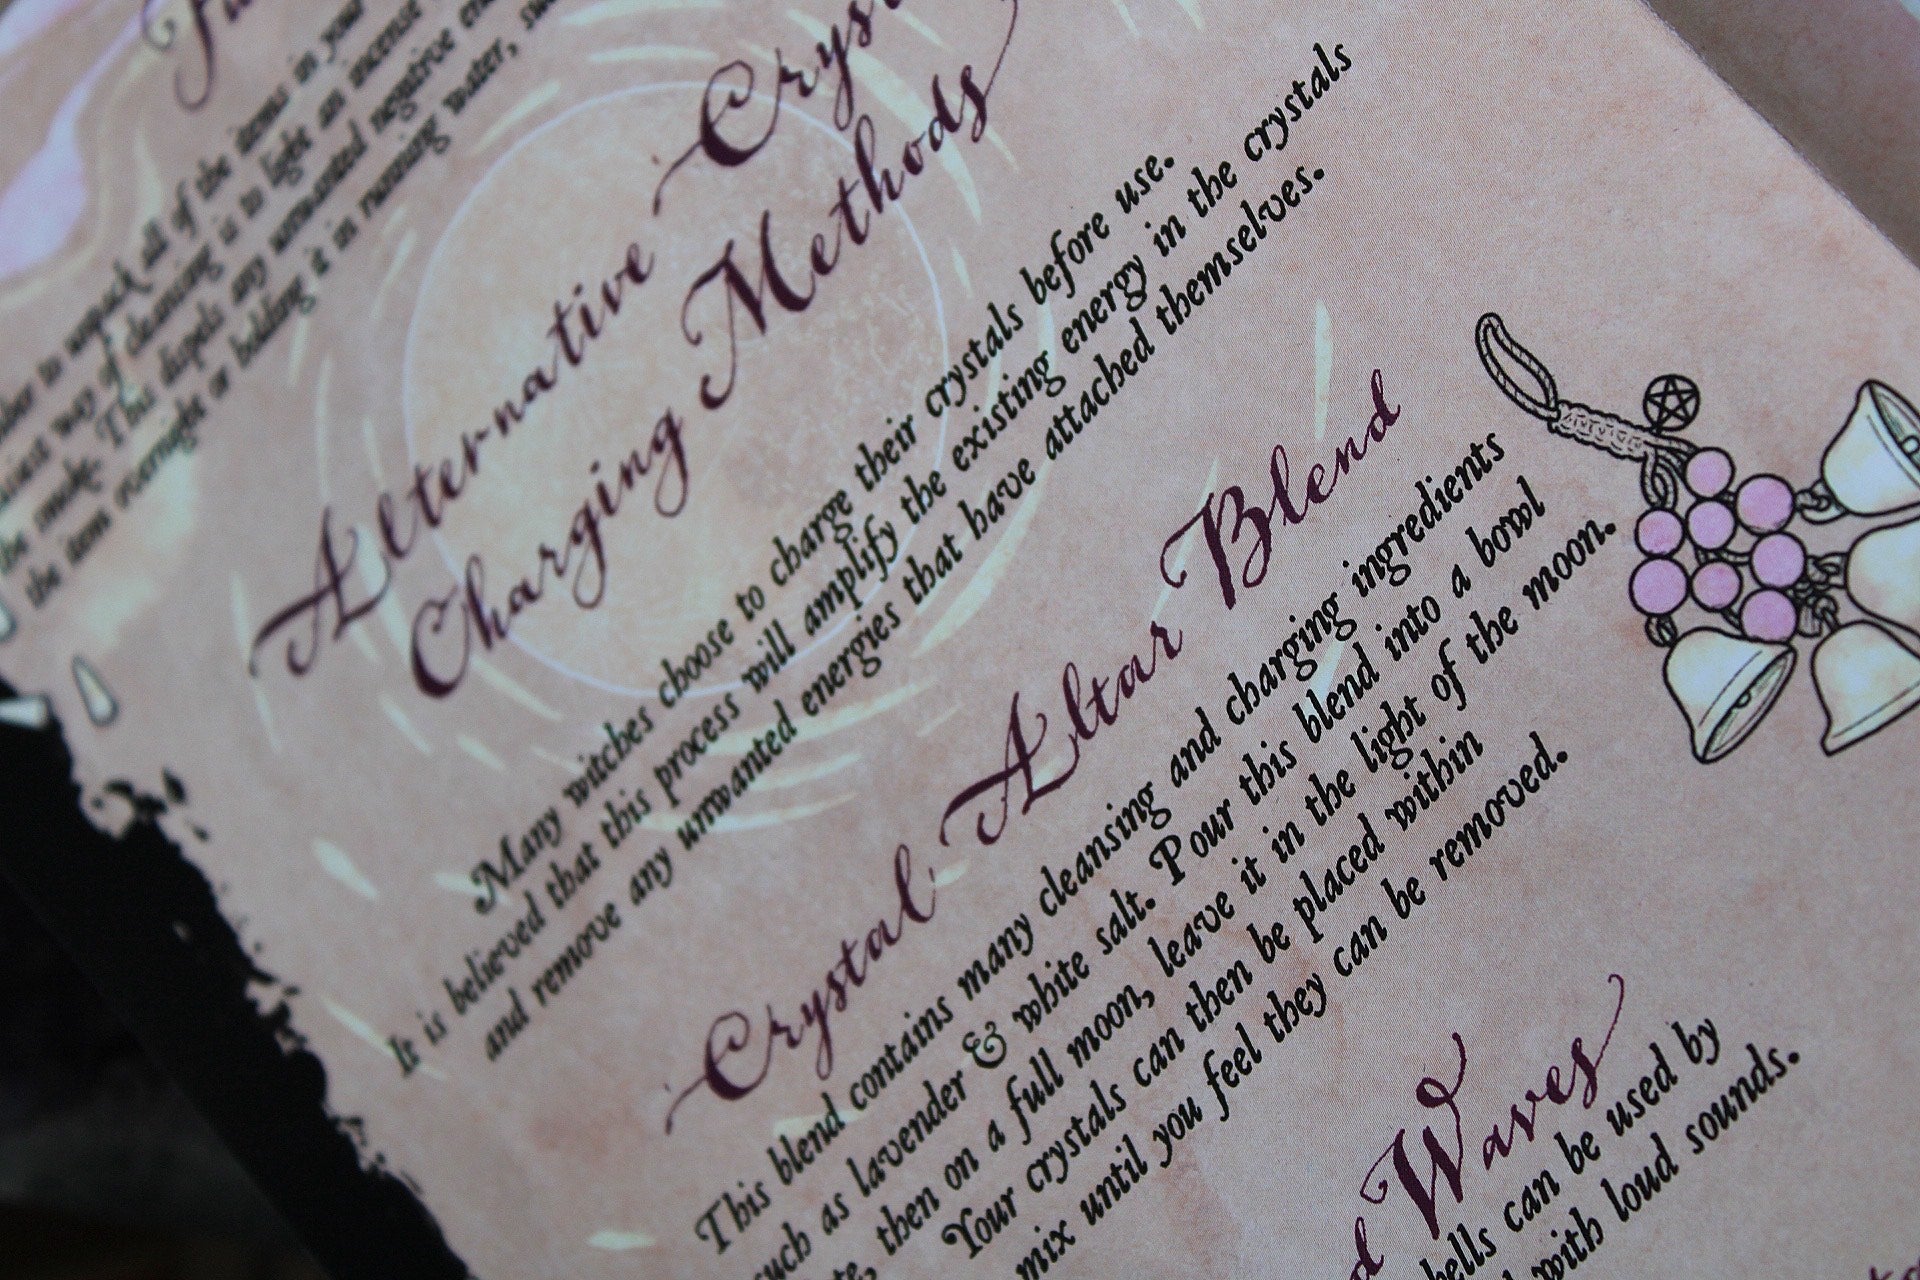 to unpack all of the items in your
way of cleansing is to light an incense
the smoke. This dispels any unwanted negative
the item overnight or holding it in running water,
Alternative Crys
Charging Methods
Many witches choose to charge their crystals before use.
It is believed that this process will amplify the existing energy in the crystals
and remove any unwanted energies that have attached themselves.
Crystal Altar Blend
This blend contains many cleansing and charging ingredients
such as lavender & white salt. Pour this blend into a bowl
then on a full moon, leave it in the light of the moon.
Your crystals can then be placed within
mix until you feel they can be removed.
Waves
bells can be used by
with loud sounds.